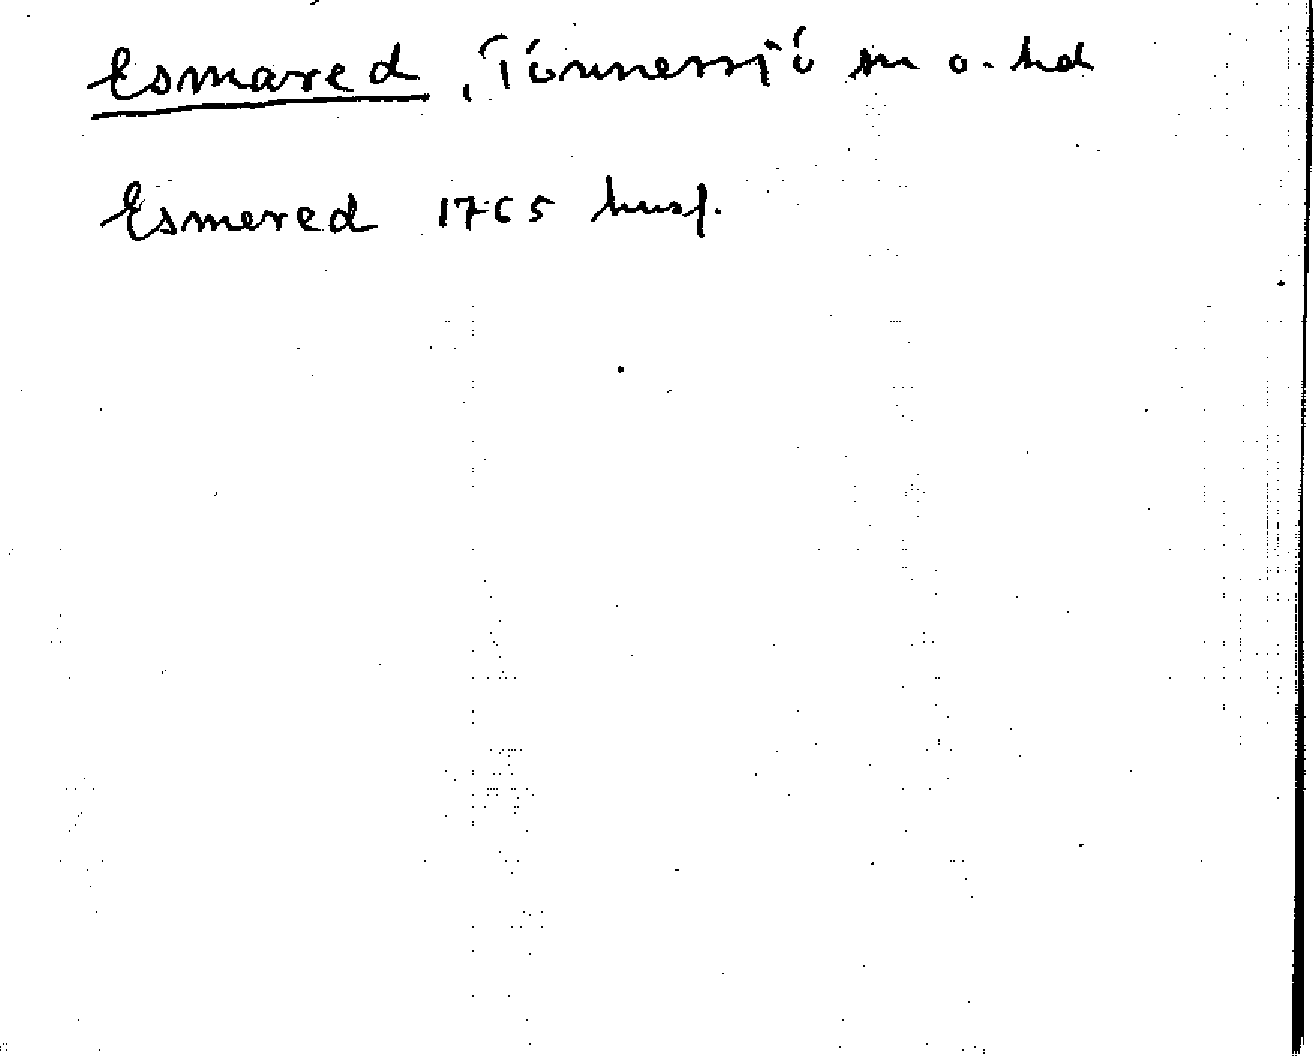 Esmared, Tönnersjö sn o. hd
Esmered 1765 husf.